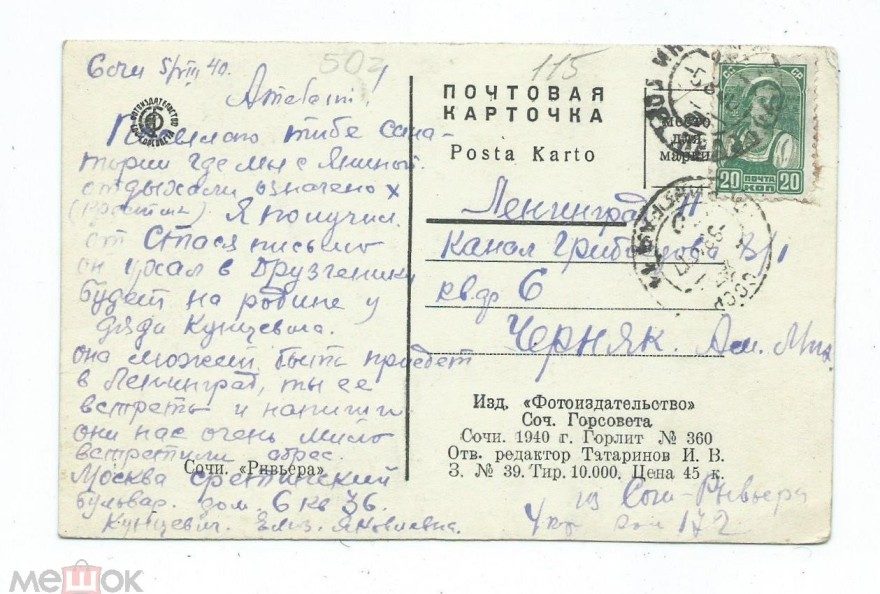 Сочи 5/VIII 40.
502
115
Посылаю тибе сана-
торий где мы с Яниной
отдыхали означено х
(крестик) Я получил
от Стася письмо
он уехал в Друзгеники
будет на родине у
дяди Кунцевича.
она может быть приедет
в Ленинград, ты ее
встреть и напиши
они нас очень мило
встретили адрес.
Москва сретинский
бульвар. дом. 6 кв 36.
Кунцевич. Елиз. Яковлевна.
Сочи. «Ривьера»
ПОЧТОВАЯ
КАРТОЧКА
Posta Karto
место
для
марки
20 ПОЧТА 20
КОП
СССР
Ленинград
Канал Грибоедова
кв 6
Черняк.
Изд. «Фотоиздательство»
Соч. Горсовета
Сочи. 1940 г. Горлит № 360
Отв. редактор Татаринов И. В.
З. № 39. Тир. 10.000, Цена 45 к.
из Сочи-Ривьера
172
мешок